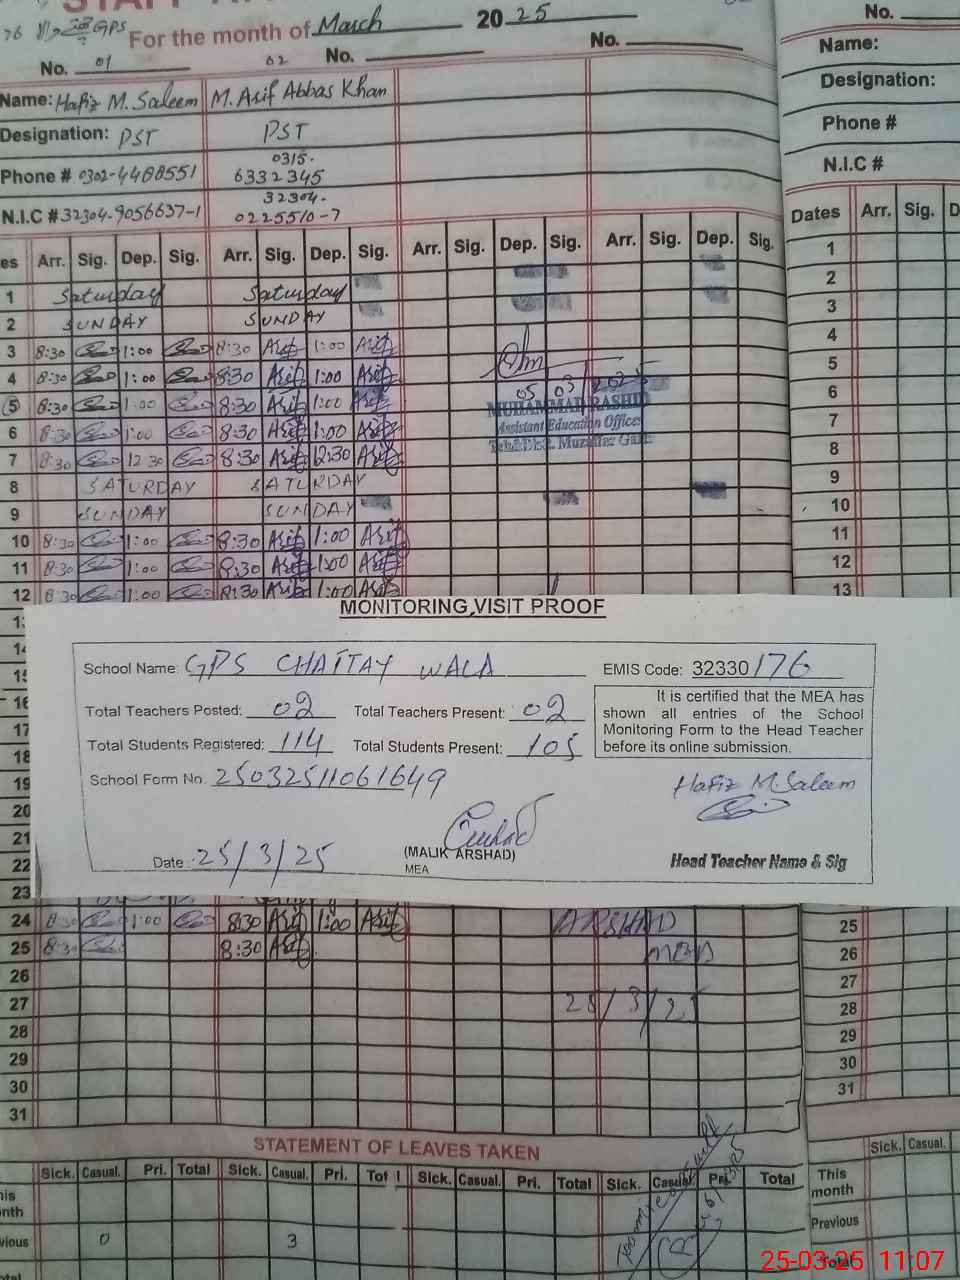 For the month of March 2025
No. 01 02 No. No.
Name: Hafiz M. Saleem M. Asif Abbas Khan
Designation: PST PST
Phone # 0302-4488551 0315-6332345
N.I.C # 32304-9056637-1 32304-0225510-7
No.
Name:
Designation:
Phone #
N.I.C #
es Arr. Sig. Dep. Sig. Arr. Sig. Dep. Sig. Arr. Sig. Dep. Sig. Arr. Sig. Dep. Sig.
Dates Arr. Sig. D
1 Saturday Saturday
2 SUNDAY SUNDAY
3 8:30 1:00 8:30 Asif 1:00 Asif
4 8:30 1:00 8:30 Asif 1:00 Asif
5 8:30 1:00 8:30 Asif 1:00 Asif
6 8:30 1:00 8:30 Asif 1:00 Asif
7 8:30 12:30 8:30 Asif 12:30 Asif
8 SATURDAY SATURDAY
9 SUNDAY SUNDAY
10 8:30 1:00 8:30 Asif 1:00 Asif
11 8:30 1:00 8:30 Asif 1:00 Asif
12 8:30 1:00 8:30 Asif 1:00 Asif
05/03/2025
MUHAMMAD RASHID
Assistant Education Officer
1
2
3
4
5
6
7
8
9
10
11
12
13
MONITORING VISIT PROOF
School Name: GPS CHATTAY WALA EMIS Code: 32330176
Total Teachers Posted: 02 Total Teachers Present: 02
Total Students Registered: 114 Total Students Present: 105
School Form No. 25032511061649
It is certified that the MEA has
shown all entries of the School
Monitoring Form to the Head Teacher
before its online submission.
Hafiz M. Saleem
Date : 25/3/25 (MALIK ARSHAD)
MEA
Head Teacher Name & Sig
14
15
16
17
18
19
20
21
22
23
24 8:30 1:00 8:30 Asif 1:00 Asif ARSHAD
25 8:30 8:30 Asif MEA
26
27 25/3/25
28
29
30
31
25
26
27
28
29
30
31
STATEMENT OF LEAVES TAKEN
Sick. Casual. Pri. Total Sick. Casual. Pri. Sick. Casual. Pri. Total Sick. Casual. Pri. Total
his
nth
vious 0 3
otal
Sick. Casual.
This
month
Previous
Total
25-03-25 11:07